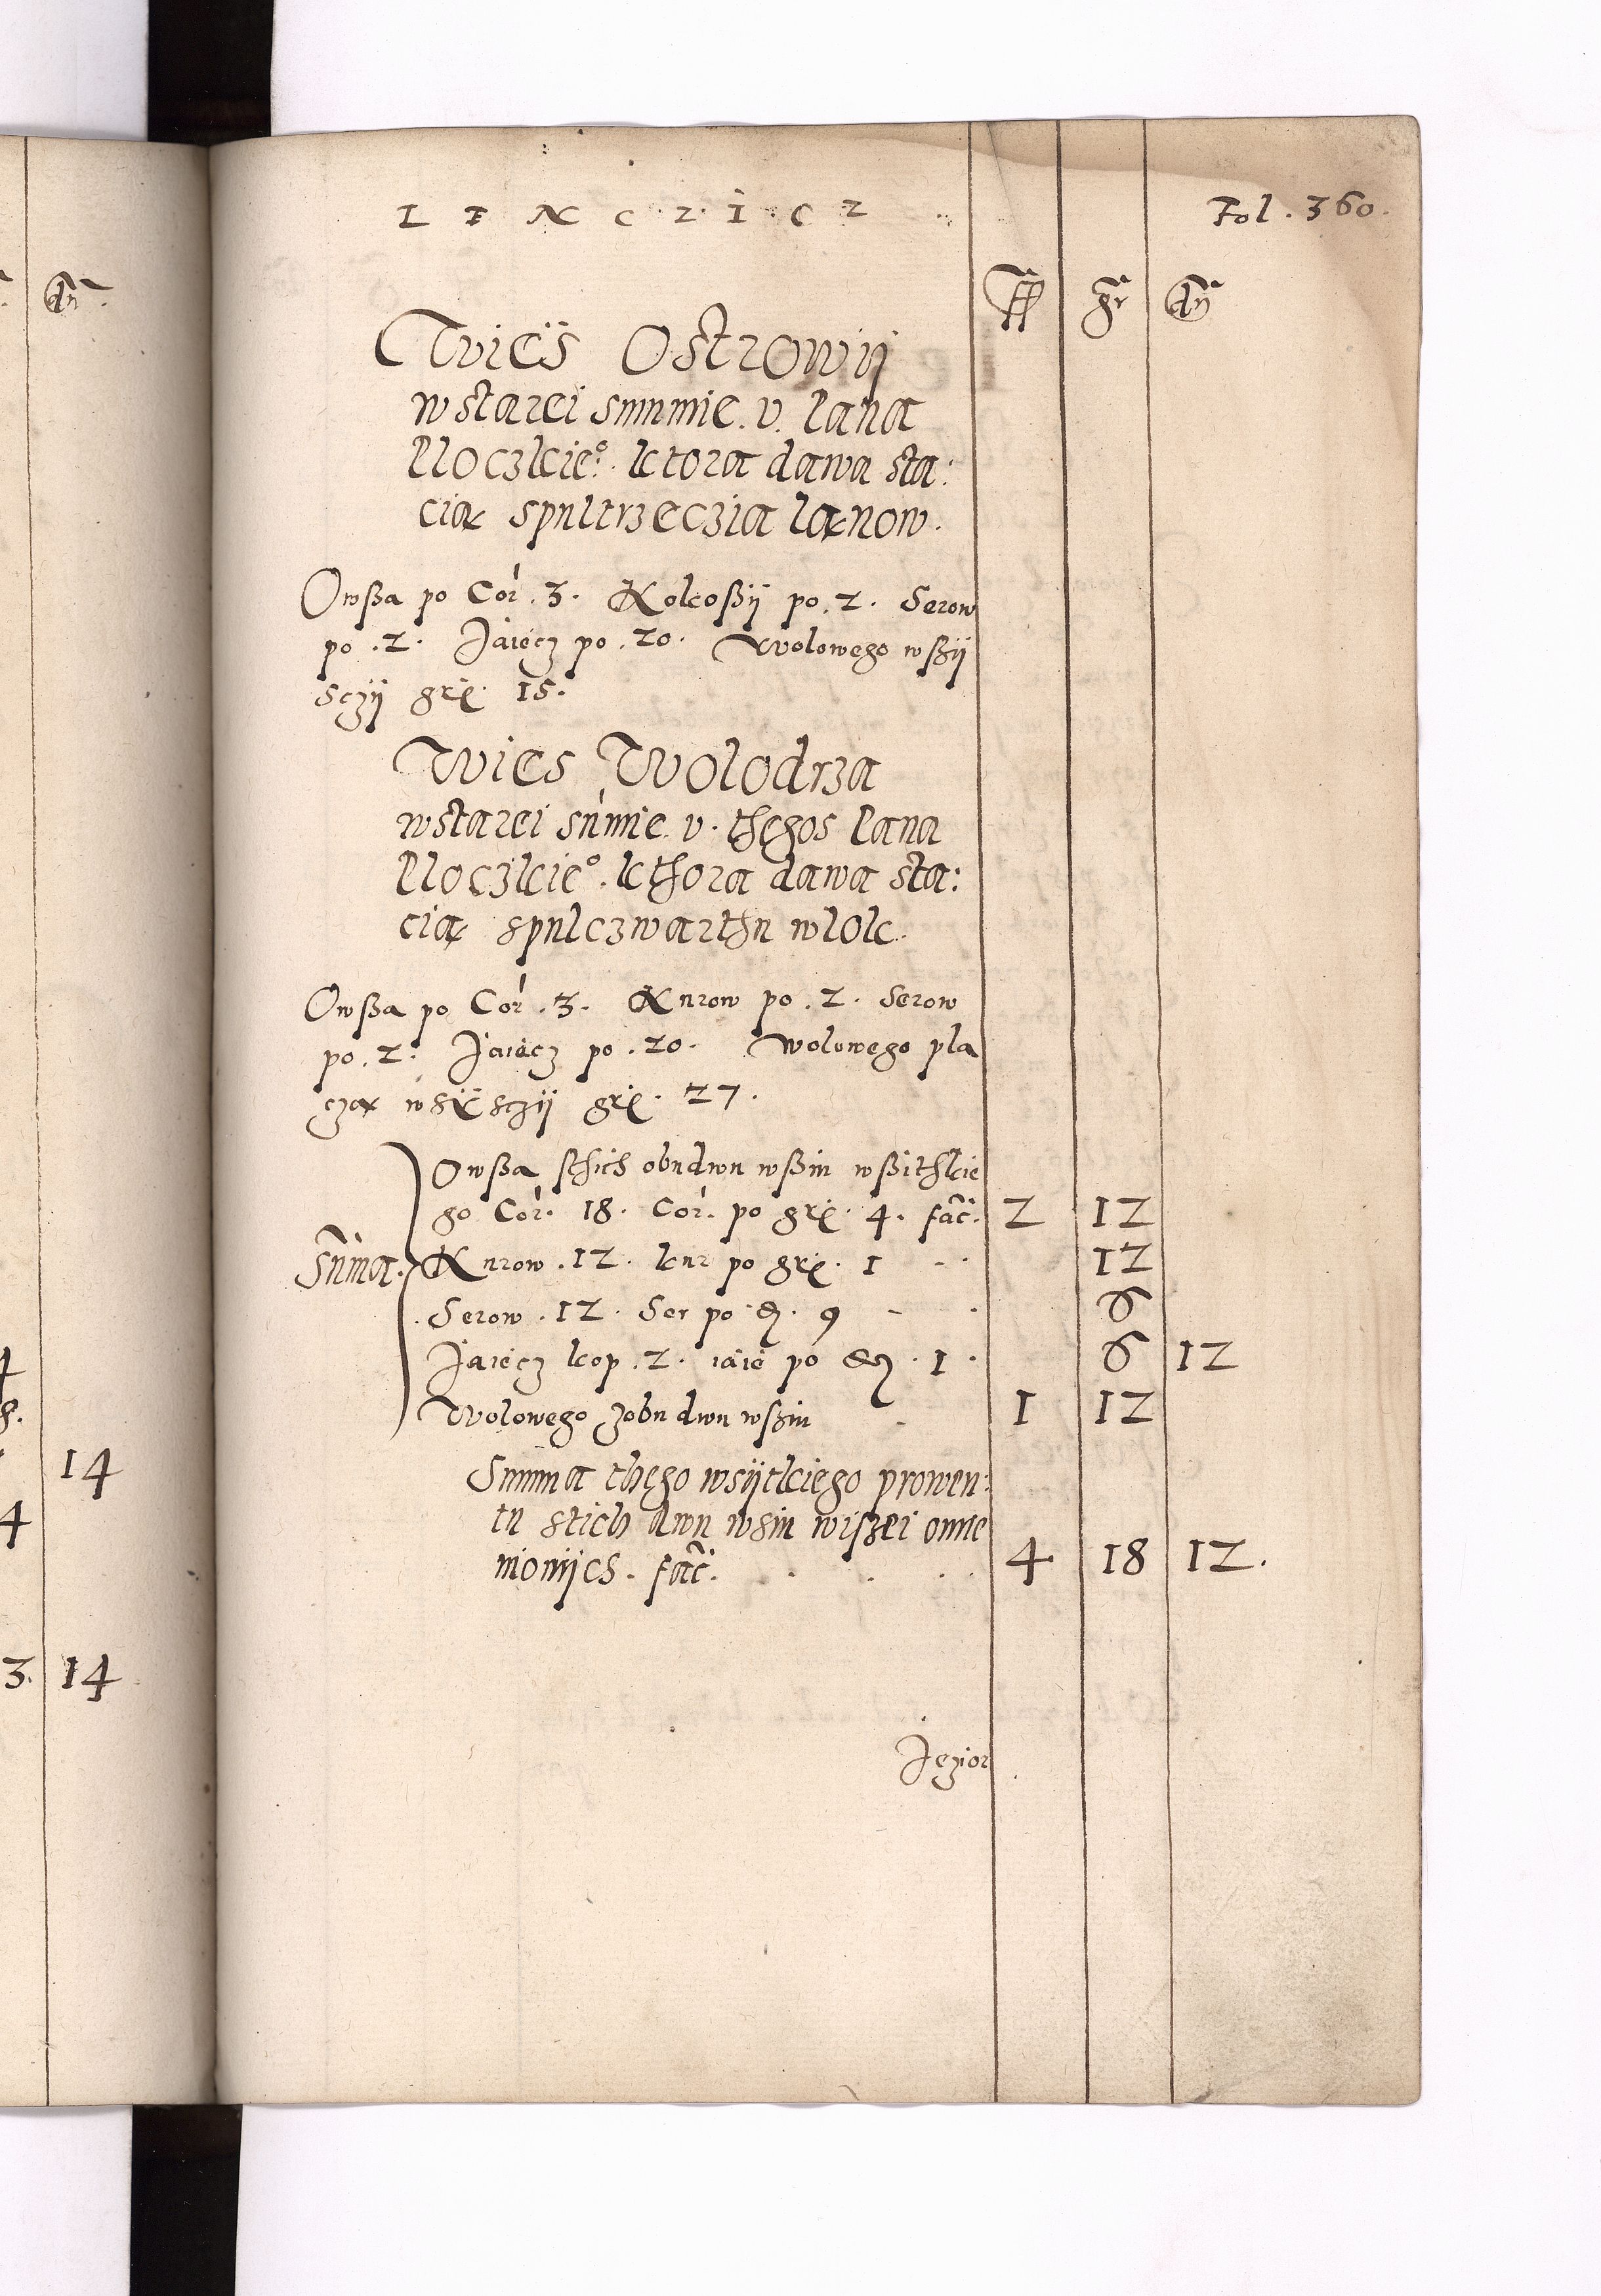 L E N C Z I C Z
Fol. 360.
ff gr dn
Wies Ostrowÿ
w starei summie. v. Iana
Kloczkieº. ktora dawa sta:
cią s pułtrzeczia łanow.
Owßa po Cor. 3. Kokoßÿ po. 2. Serow
po. 2. Jaiecz po. 20. Wolowego wßÿ
sczÿ grł. 15.
Wies Wolodrza
w starei sūmie. v. thegos Iana
Kloczkieº. kthora dawa sta:
cią s pułczwarthu włok.
Owßa po Cor. 3. Kurow po. 2. Serow
po. 2. Jaiecz po. 20. Wolowego pla
czą wsÿsczÿ grł. 27.
Owßa sthich obudwu wßiu wßithkie
go Cor. 18. Cor. po grł. 4. fac. 2 12
Sūma. Kurow. 12. kur po grł. 1 12
Serow. 12. Ser po d. 9 6
Jaiecz kop. 2. iaie po d. 1. 6 12
Wolowego z obudwu wßiu 1 12
Summa thego wsÿtkiego prowen:
tu s tich dwu wsiu wißei omie
nionÿch. fac. 4 18 12.
Jezior
dn
4
14
4
3. 14